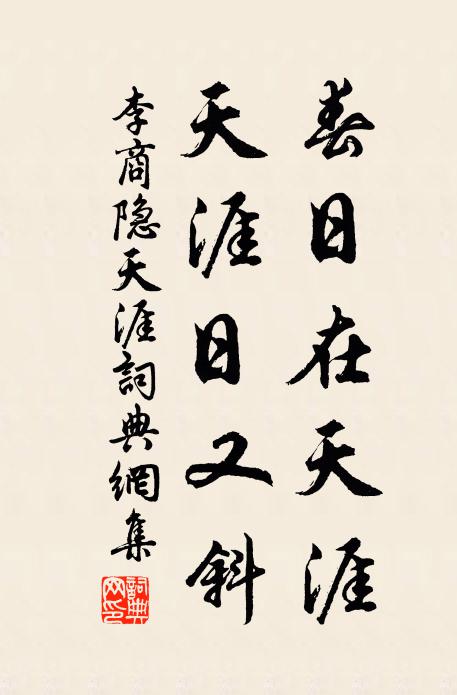 春日在天涯
天涯日又斜
李商隐天涯詞典網集
詞典網印